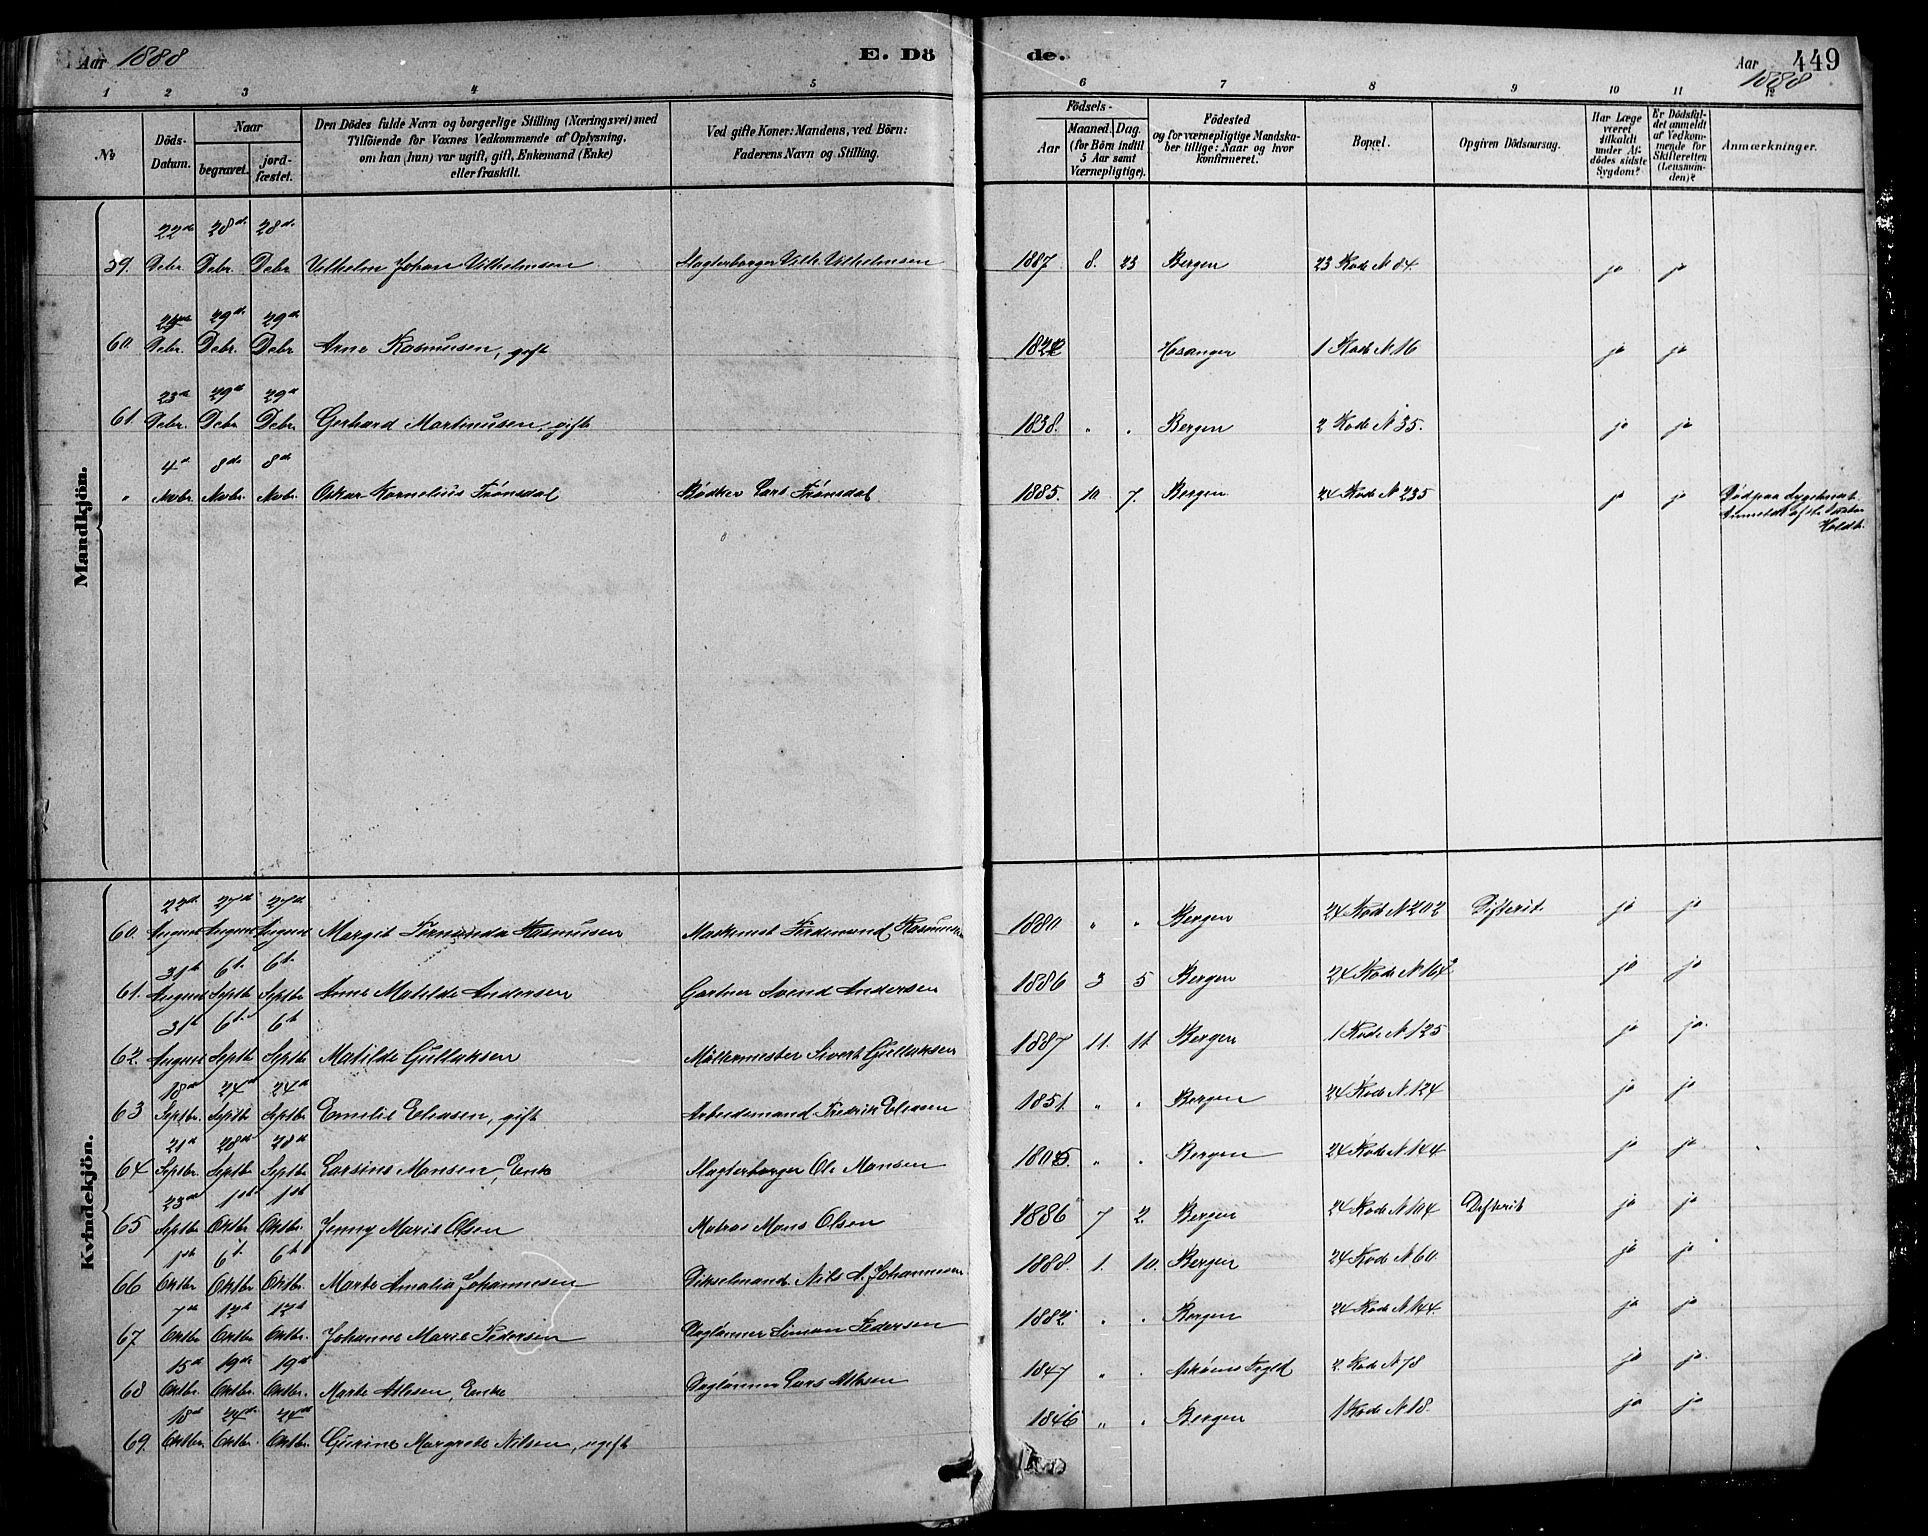 Aar 1888 E. Dö de. Aar 1888 449
1 2 3 4 5 6 7 8 9 10 11 12
No
Döds-Datum.
Naar
begravet.
jord-fæstet.
Den Dödes fulde Navn og borgerlige Stilling (Næringsvei) med
Tilföiende for Voxnes Vedkommende af Oplysning,
om han (hun) var ugift, gift, Enkemand (Enke)
eller fraskilt.
Ved gifte Koner: Mandens, ved Börn:
Faderens Navn og Stilling.
Födsels-
Aar
Maaned. Dag.
(for Börn indtil
5 Aar samt
Værnepligtige).
Födested
og for værnepligtige Mandska-
ber tillige: Naar og hvor
konfirmeret.
Bopæl.
Opgiven Dödsaarsag.
Har Læge
været
tilkaldt
under Af-
dödes sidste
Sygdom?
Er Dödsfal-
det anmeldt
af Vedkom-
mende for
Skifteretten
(Lensman-
den)?
Anmærkninger.
Mandkjön.
22de 28de 28de
59. Debr. Debr. Debr. Vilhelm Johan Vilhelmsen Slagterborger Vilh. Vilhelmsen 1887 8. 23 Bergen 23 Rode N 84. ja ja
29de 29de
60. Debr. Debr. Debr Arne Rasmusen, gift Hosanger 1 Rode N 16 ja ja
23de 29de 29de
61. Debr. Debr Debr. Gerhard Martinusen, gift 1838. " " Bergen 2 Rode N 35. ja ja
4de 8de 8de
" Novbr. Novbr. Novbr. Oskar Kornelius Trönsdal Bödker Lars Trönsdal 1885. 10. 7. Bergen 24 Rode N 235 ja ja Död paa Sygehuset.
Anmeldt af
Holdt.
Kvindekjön.
22de 27de 27de
60. August August August Margit Fernanda Rasmusen Maskinist Ferdinand Rasmusen 1880 " " Bergen 24 Rode N 202 Difterit. ja ja
31te 6te 6te
61. August Septbr Septbr Anna Matilde Andersen Gartner Svend Andersen 1886 3 5 Bergen 24 Rode N 164 ja ja
31te 6te 6te
62. August Septbr Septbr Matilde Gullaksen Möllermester Sivert Gullaksen 1887 11. 11. Bergen 1 Rode N 125 ja ja.
18de 24de 24de
63 Septbr. Septbr Septbr Emilie Eleasen, gift Arbeidsmand Fredrik Eleasen 1851. " " Bergen 24 Rode N 124 ja ja
21de 28de 28de
64 Septbr. Septbr Septbr Larsine Monsen, Enke Slagterborger Ole Monsen 1805. " " Bergen 24 Rode N 144 ja ja
23de 1ste 1ste
65 Septbr Oktbr. Oktbr. Jenny Marie Olsen Matros Mons Olsen 1886 7 2. Bergen 24 Rode N 104 Difterit ja ja
1ste 6te 6te
66 Oktbr Oktbr Oktbr. Marte Amalia Johannesen Nils A. Johannesen 1888. 1. 10. Bergen 24 Rode N 60 ja ja
7de 12te 12te
67. Oktbr Oktbr Oktbr. Johanne Marie Pedersen Daglönner Simon Pedersen 1882. " " Bergen 24 Rode N 144 ja ja
15de 19de 19de
68 Oktbr. Oktbr. Oktbr. Marte Atlesen, Enke Daglönner Lars Atlesen 1847 " " Asköens Prgld 2. Rode N 78 ja ja.
18de 24de 24de
69. Oktbr. Oktbr. Oktbr. Gurine Margrete Nilsen, ugift 1846 " " Bergen 1 Rode N 18. ja ja